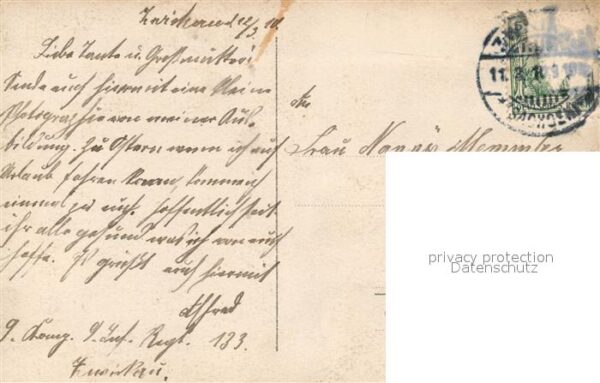 Zwickau d 12/3 10
Liebe Tante u. Großmutter!
Sende euch hiermit eine kleine
Photographie von meiner Aus-
bildung. Zu Ostern wenn ich auf
Urlaub fahren kann, komme ich
einmal zu euch. Hoffentlich seit
ihr alle gesund was ich von euch
hoffe. Es grüßt euch hiermit
Alfred
9. Komp. 9. Inf. Regt. 133.
Zwickau.
An
Frau Memmler
privacy protection
Datenschutz